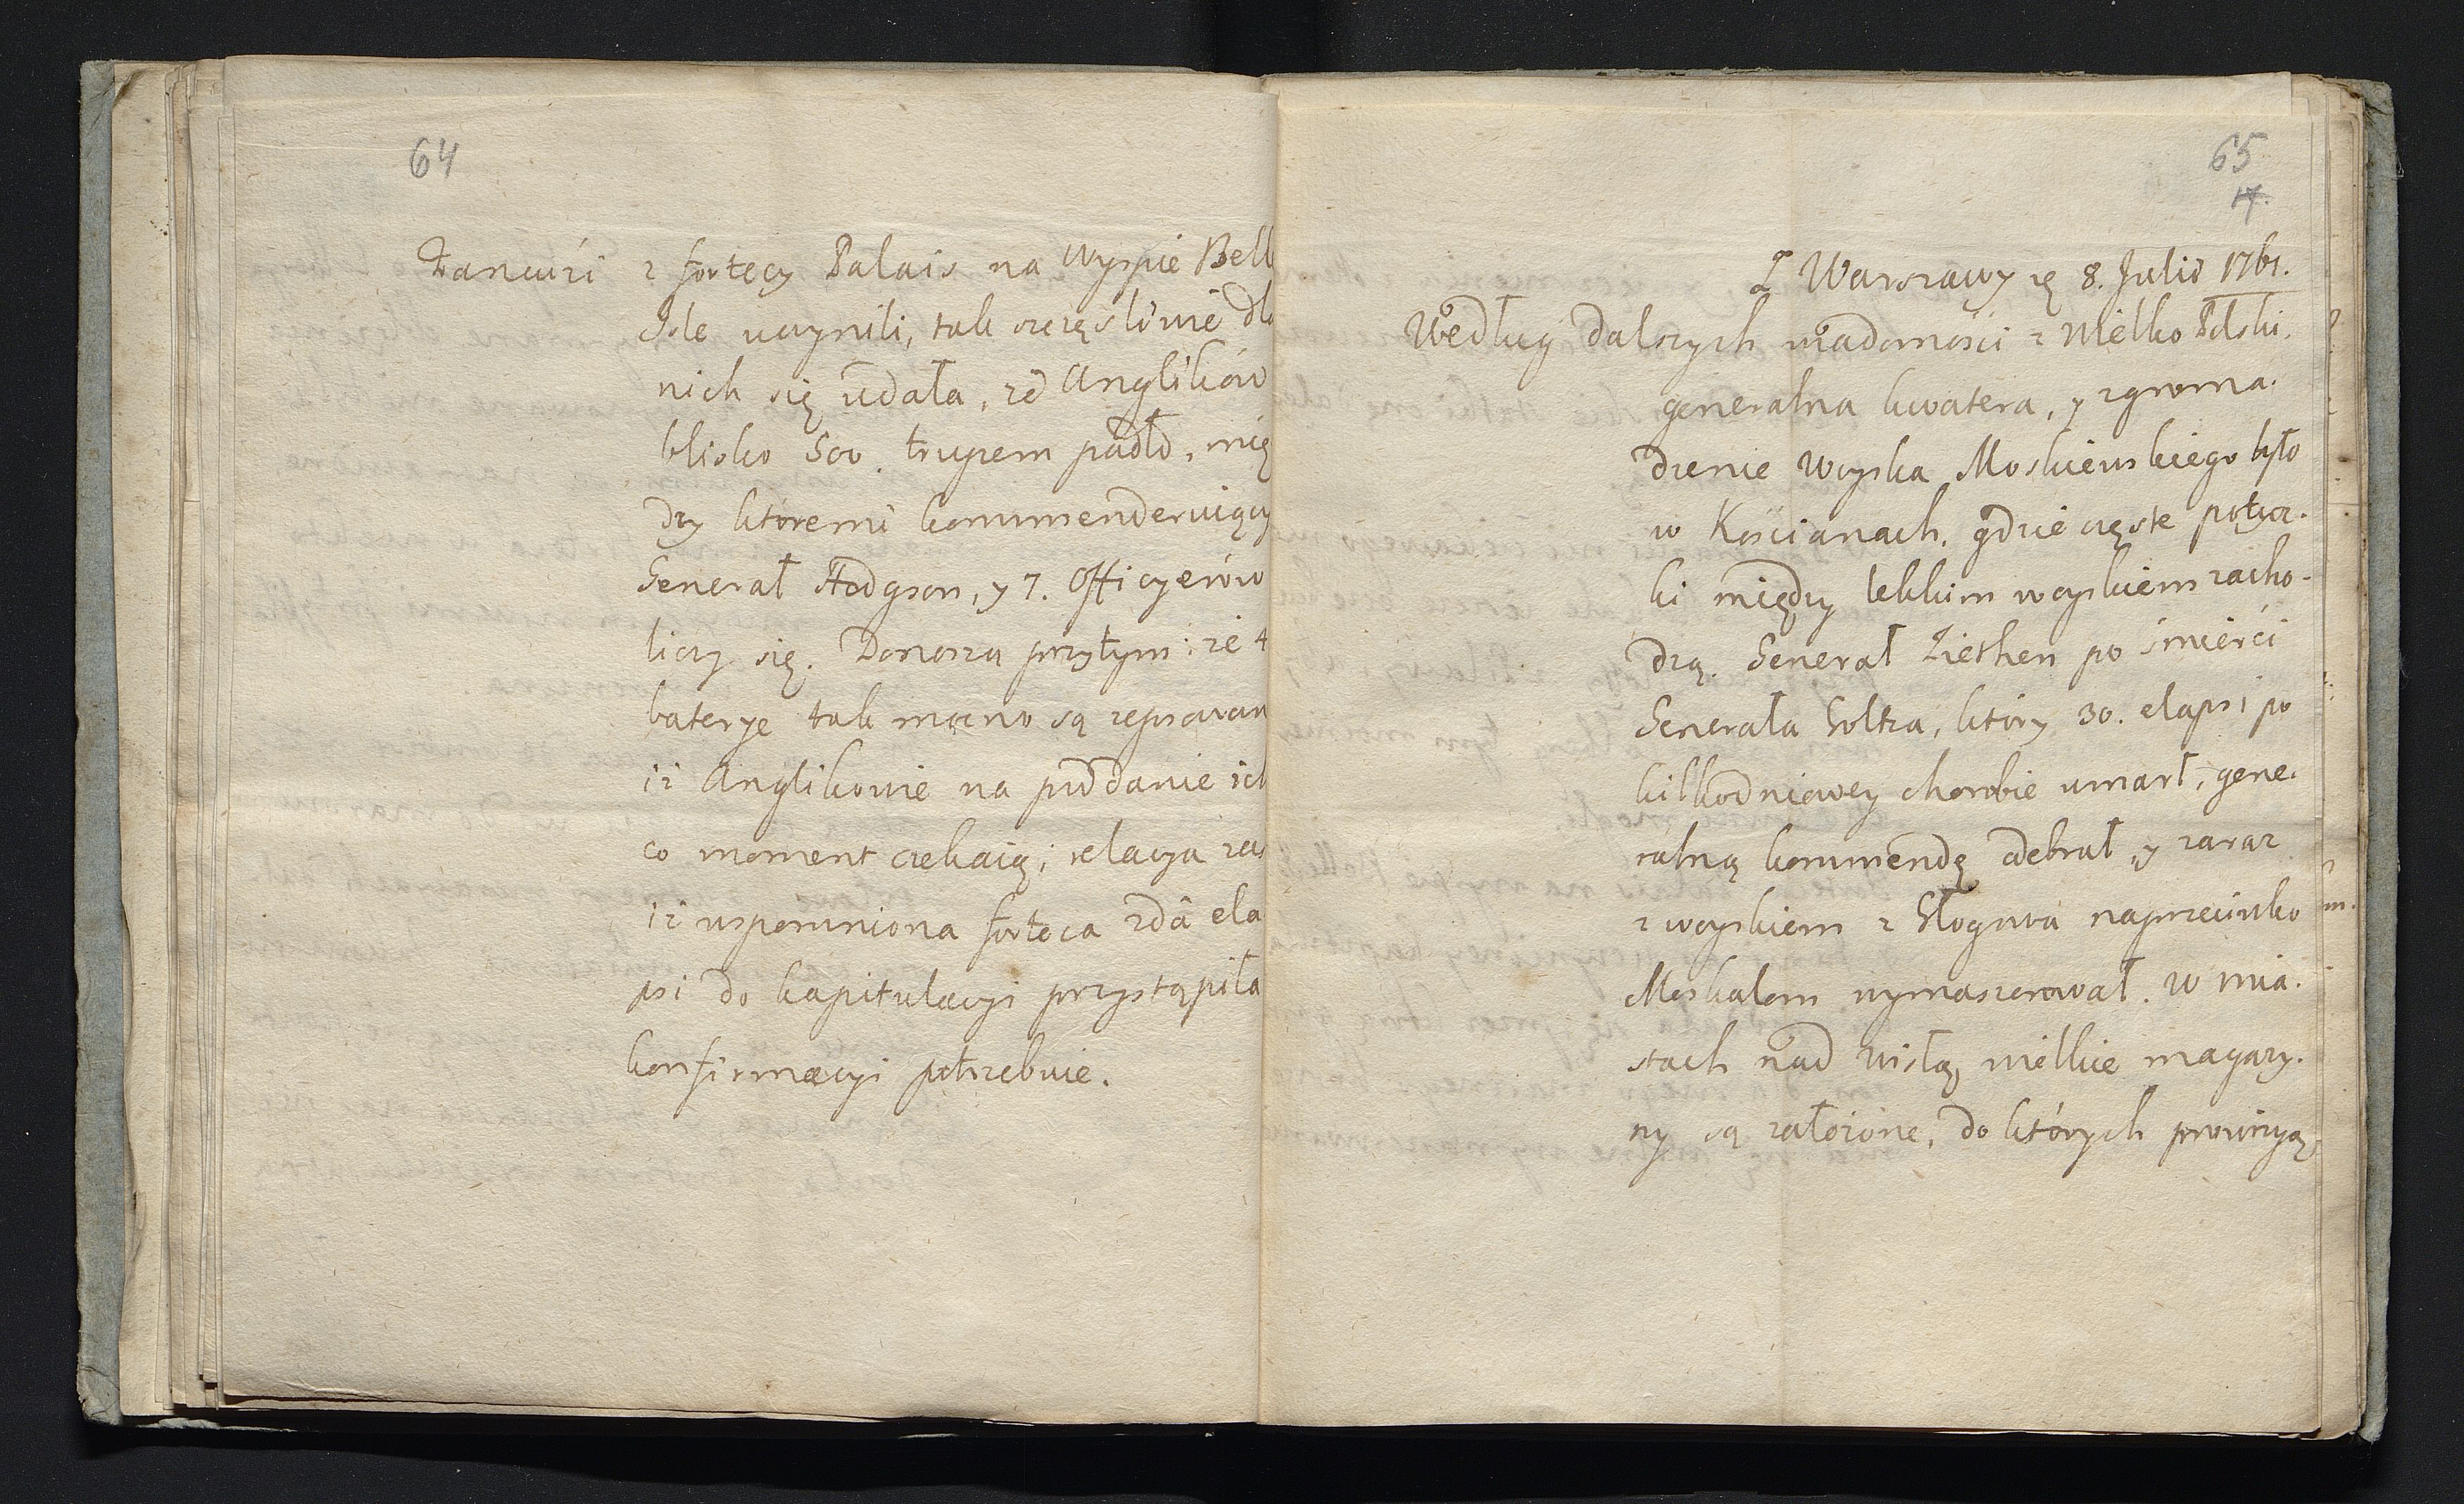 64
Francuzi z fortecy Palais na Wyspie Bell
Isle uczynili, tak szczęśliwie dla
nich się udała, że Anglików
blisko 500. trupem padło, mię
dzy ktoremi kommenderuiący
Generał Hodgson, y 7. Officyerów
liczy się. Donoszą przytym: że 4
baterye tak mocno są zepsowan
iż Anglikowie na poddanie ich
co moment czekaią; relacya zas
iż wspomniona forteca 2da ela
psi do kapitulacyi przystąpiła
konfirmacyi potrzebuie.
65
17.
Z Warszawy 8. Julii 1761.
Według dalszych wiadomości z Wielko Polski.
generalna kwatera, y zgroma-
dzenie Woyska Moskiewskiego było
w Kościanach, gdzie częste potycz-
ki między lekkim woyskiem zacho-
dzą. Generał Ziethen po śmierći
Generała Goltza, ktòry 30. elapsi po
kilkodniowey chorobie umarł, gene-
ralną kommendę odebrał, y zaraz
z woyskiem z Głogowa naprzeciwko
Moskalom wymaszerował. W mia-
stach nad Wisłą, wielkie magazy-
ny są założone, do których prowizyą